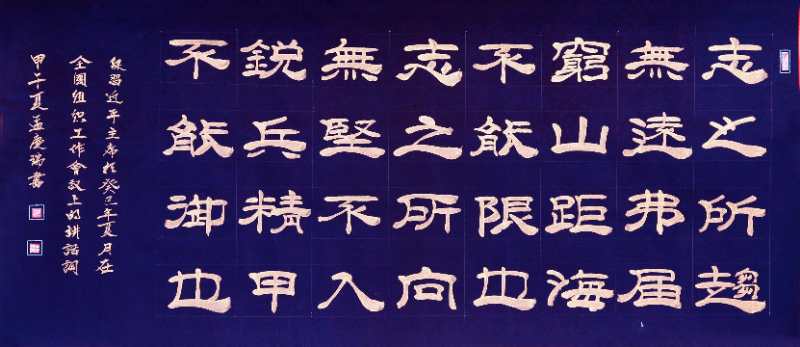 志之所趨
無遠弗届
窮山距海
不能限也
志之所向
無堅不入
鋭兵精甲
不能御也
録習近平主席於癸巳年夏月在
全國組织工作會议上的讲話詞
甲午夏孟慶瑞書